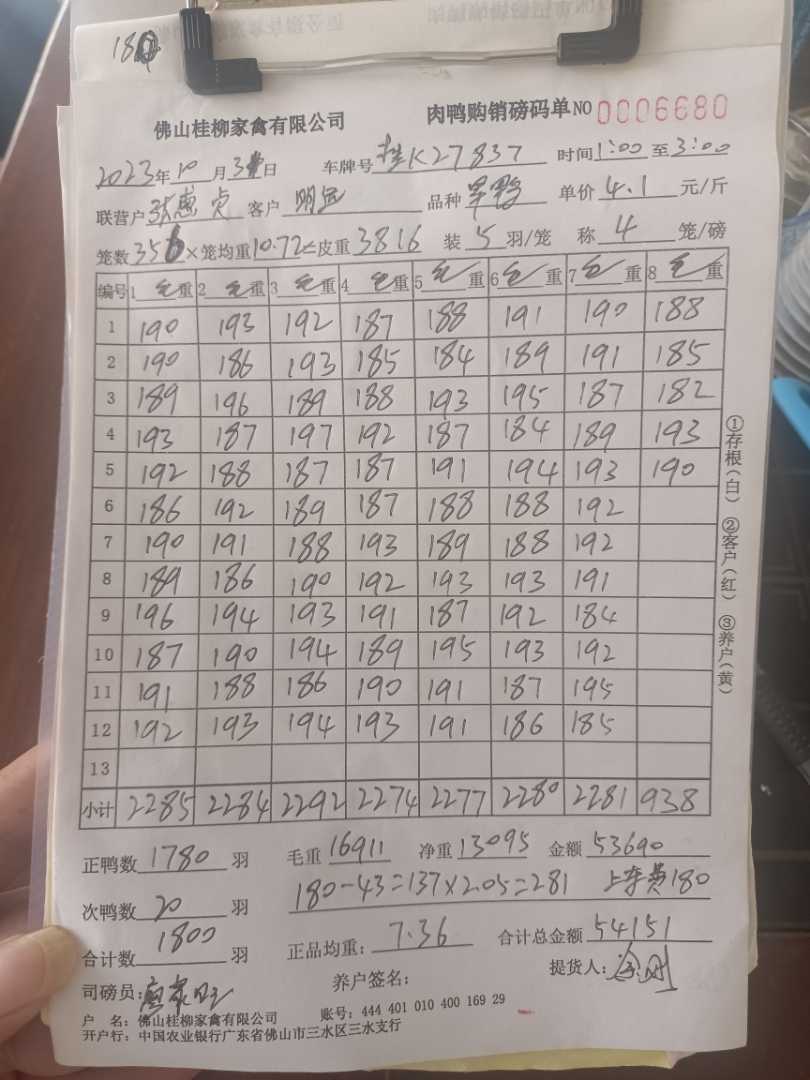 180
佛山桂柳家禽有限公司 肉鸭购销磅码单 NO 0006680
2023年10月31日 车牌号 桂K27837 时间1:00至3:00
联营户 张惠贞 客户 明远 品种 单价 4.1 元/斤
笼数356×笼均重10.72=皮重3816 装5羽/笼 称4笼/磅
编号 1毛重 2毛重 3毛重 4毛重 5毛重 6毛重 7毛重 8毛重
1 190 193 192 187 188 191 190 188
2 190 186 193 185 184 189 191 185
3 189 196 189 188 193 195 187 182
4 193 187 197 192 187 184 189 193
5 192 188 187 187 191 194 193 190
6 186 192 189 187 188 188 192
7 190 191 188 193 189 188 192
8 189 186 190 192 193 193 191
9 196 194 193 191 187 192 184
10 187 190 194 189 195 193 192
11 191 188 186 190 191 187 195
12 192 193 194 193 191 186 185
13
小计 2285 2284 2292 2274 2277 2280 2281 938
①存根(白) ②客户(红) ③养户(黄)
正鸭数 1780 羽 毛重 16911 净重 13095 金额 53690
180-43=137×2.05=281 上车费180
次鸭数 20 羽
合计数 1800 羽 正品均重: 7.36 合计总金额 54151
司磅员: 养户签名: 提货人:
户 名: 佛山桂柳家禽有限公司 账号: 444 401 010 400 169 29
开户行: 中国农业银行广东省佛山市三水区三水支行